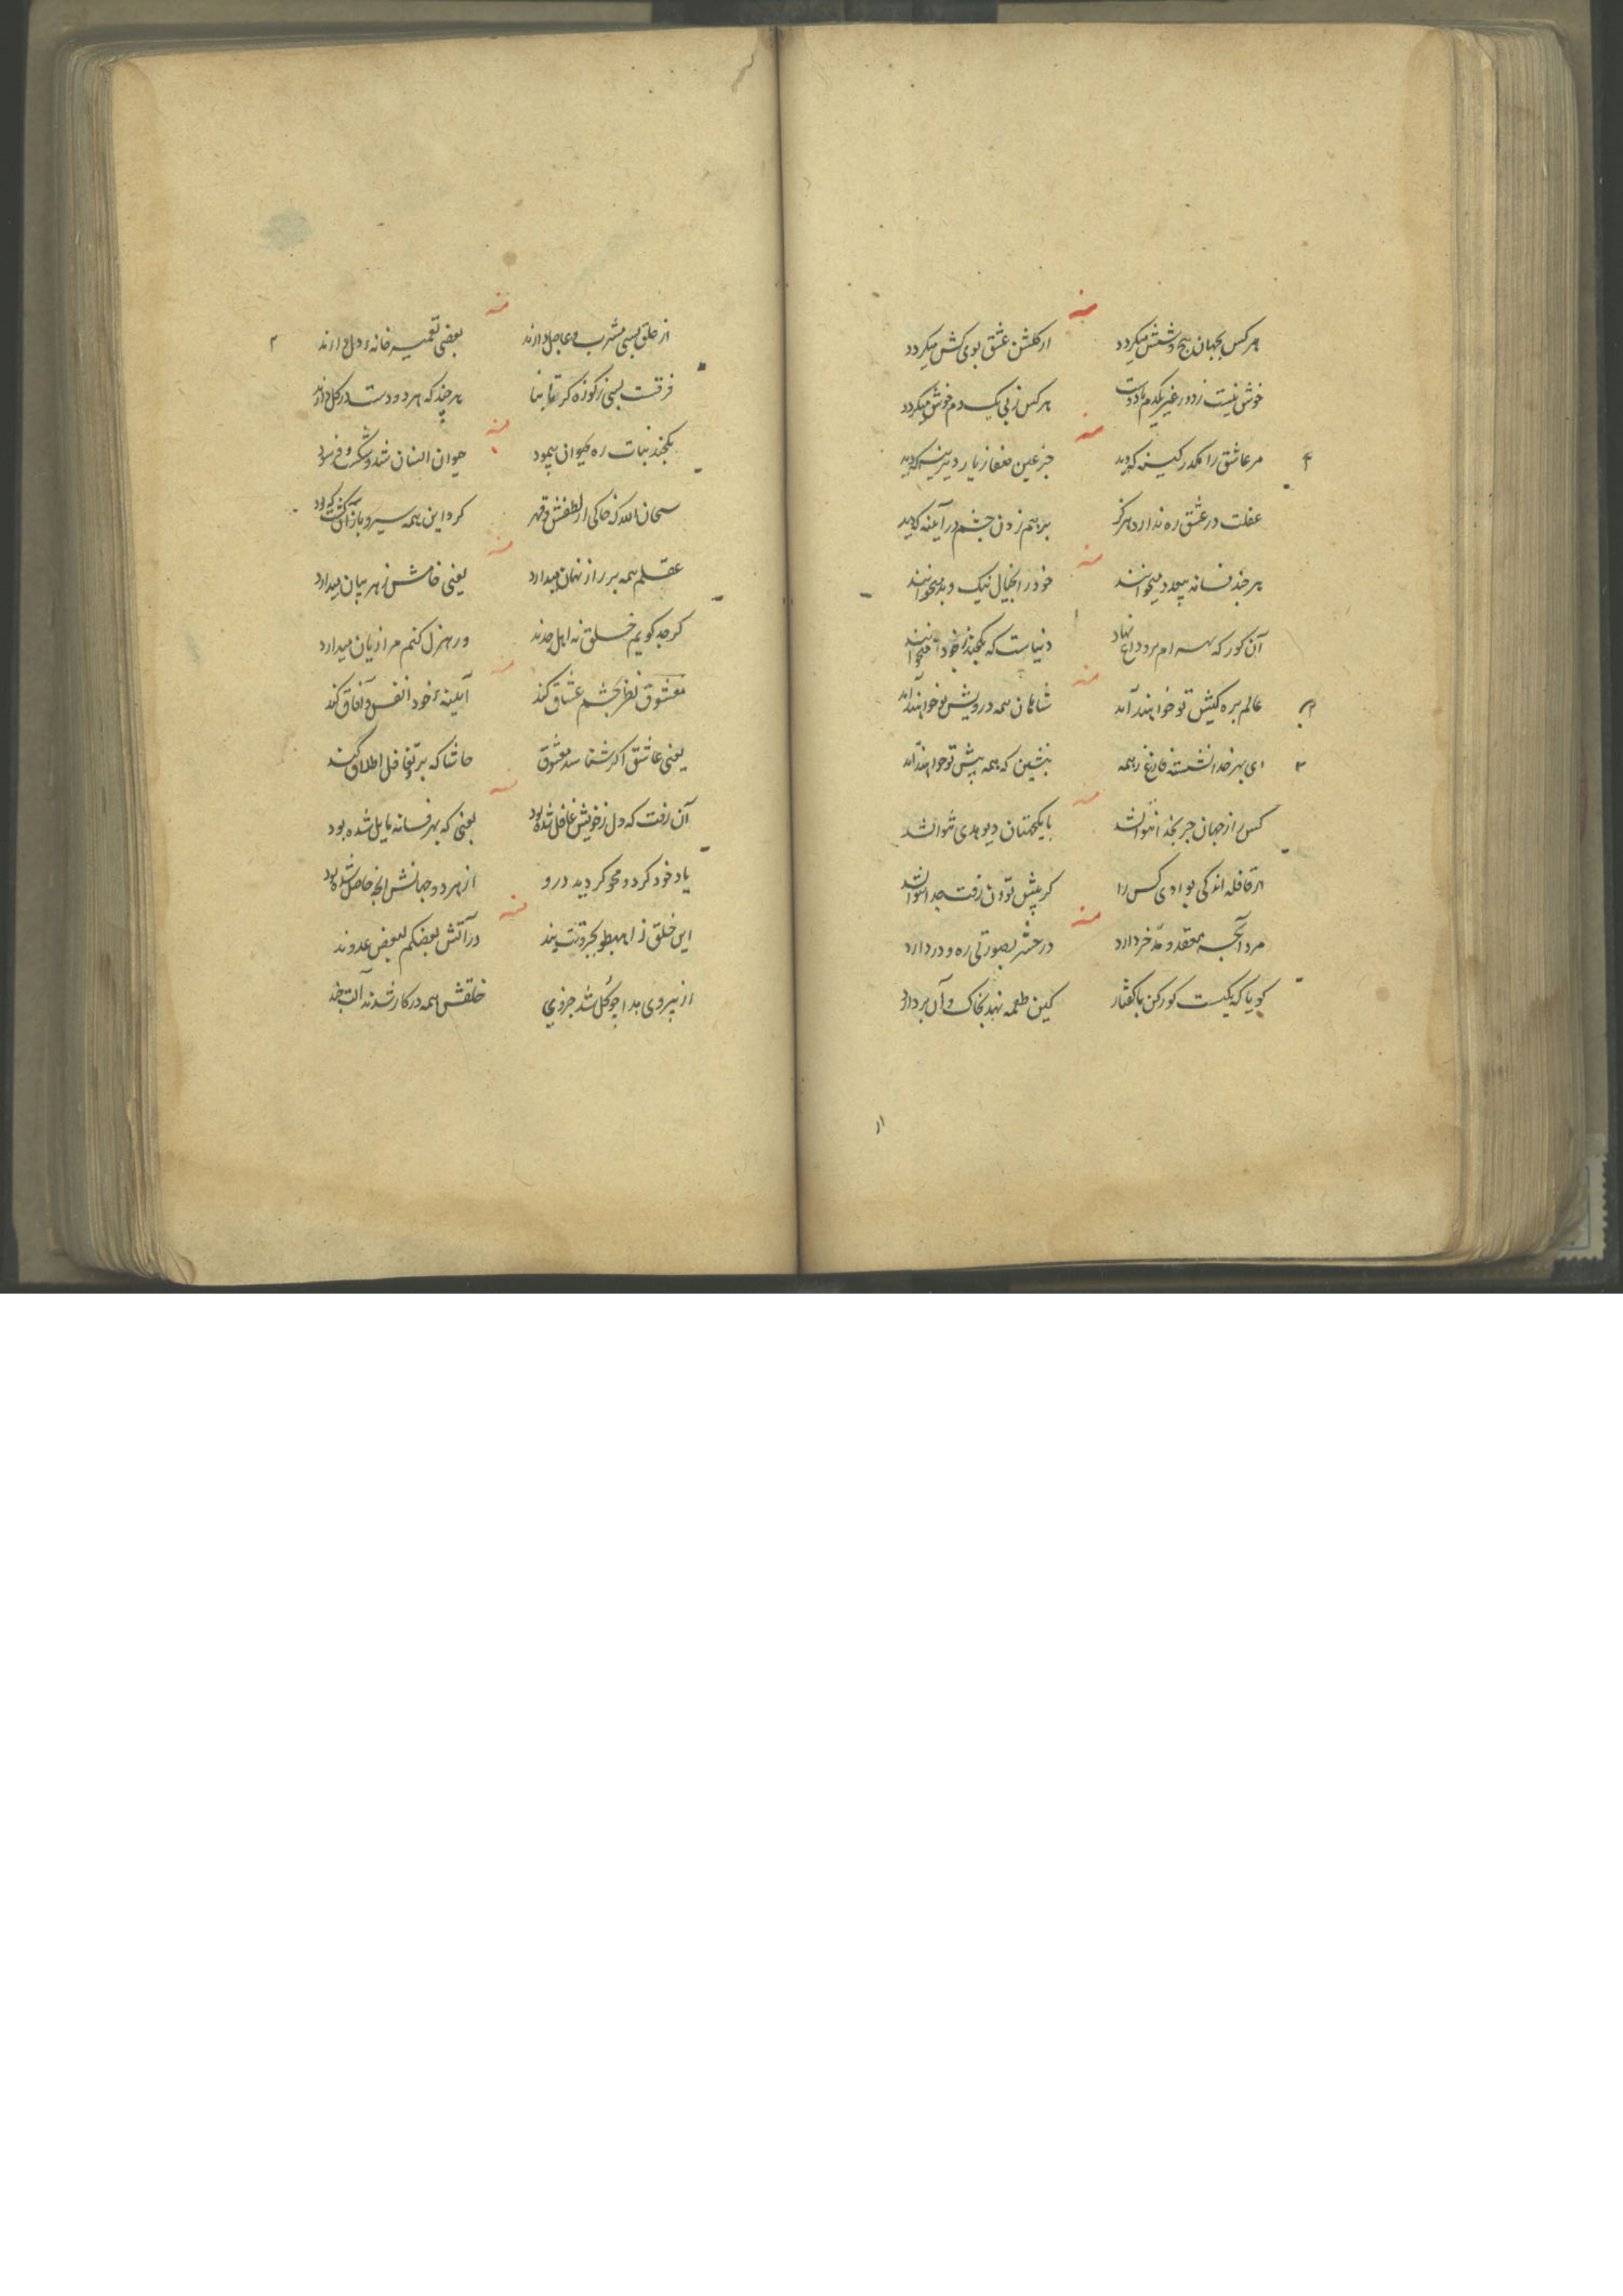 منه
هر کس بجهان پنج و ششش میگردد از گلشن عشق بوی کش میگردد
خوش نیست ز دور غیر یکدم با دوست هر کس ز پی یک دم خوش میگردد
منه
مر عاشق را مکدر کینه که دید جز عین صفا ز یار دیرینه که دید
غفلت در عشق ره ندارد هرگز بر هم زدن چشم در آینه که دید
منه
هر چند فسانه بیعدد میخوانند خود را بخیال نیک و بد میخوانند
آن گور که بهرام برو داغ نهاد دنیاست که یکچند ز خود میخوانند
منه
عالم بره کیش تو خواهند آمد شاهان همه درویش تو خواهند آمد
ای بهر خدا نشسته فارغ ز همه بنشین که همه پیش تو خواهند آمد
منه
کس را ز جهان جز بخدا نتوان شد با یکجهتان دیو هدی نتوان شد
از قافله اندکی بوادی کس را گر پیش توان رفت جدا نتوان شد
منه
مرد آنچه بعقد و مد خر دارد در حشر بصورتی ره و در دارد
گویا که یکیست گورکن با کفتار کین طعمه نهد بخاک و آن بردارد
از
منه
از خلق بسی مشرب و عاجل دارند بعضی تعمیر خانهٔ دل دارند
فرقست بسی ز کوزه گر تا بنا هر چند که هر دو دست در گل دارند
منه
یکچند نبات ره حیوان پیمود حیوان انسان شد و شکست و فرسود
سبحان الله که خاکی از لطفش و قهر کرد این همه سیر و باز آن گشت که بود
منه
عقلم همه بر راز نهان میدارد یعنی خامش ز هر بیان میدارد
گر جد گویم خلق نه اهل جدند ور هزل کنم مرا زیان میدارد
منه
معشوق نظر بچشم عشاق کند آیینهٔ خود انفس و آفاق کند
یعنی عاشق اگر شناسد معشوق حاشا که برو تغافل اطلاق کند
منه
آن رفت که دل ز خویش غافل شده بود یعنی که بهر فسانه مایل شده بود
یاد خود کرد و محو گردید درو از هر دو جهانش آنچه حاصل شده بود
منه
این خلق ز اهبطوا بجز وقت نیند در آتش بعضکم لبعض عدوند
از پیروی خدا چو کل شد جزوی خلقش همه در کار شدند آلت چند